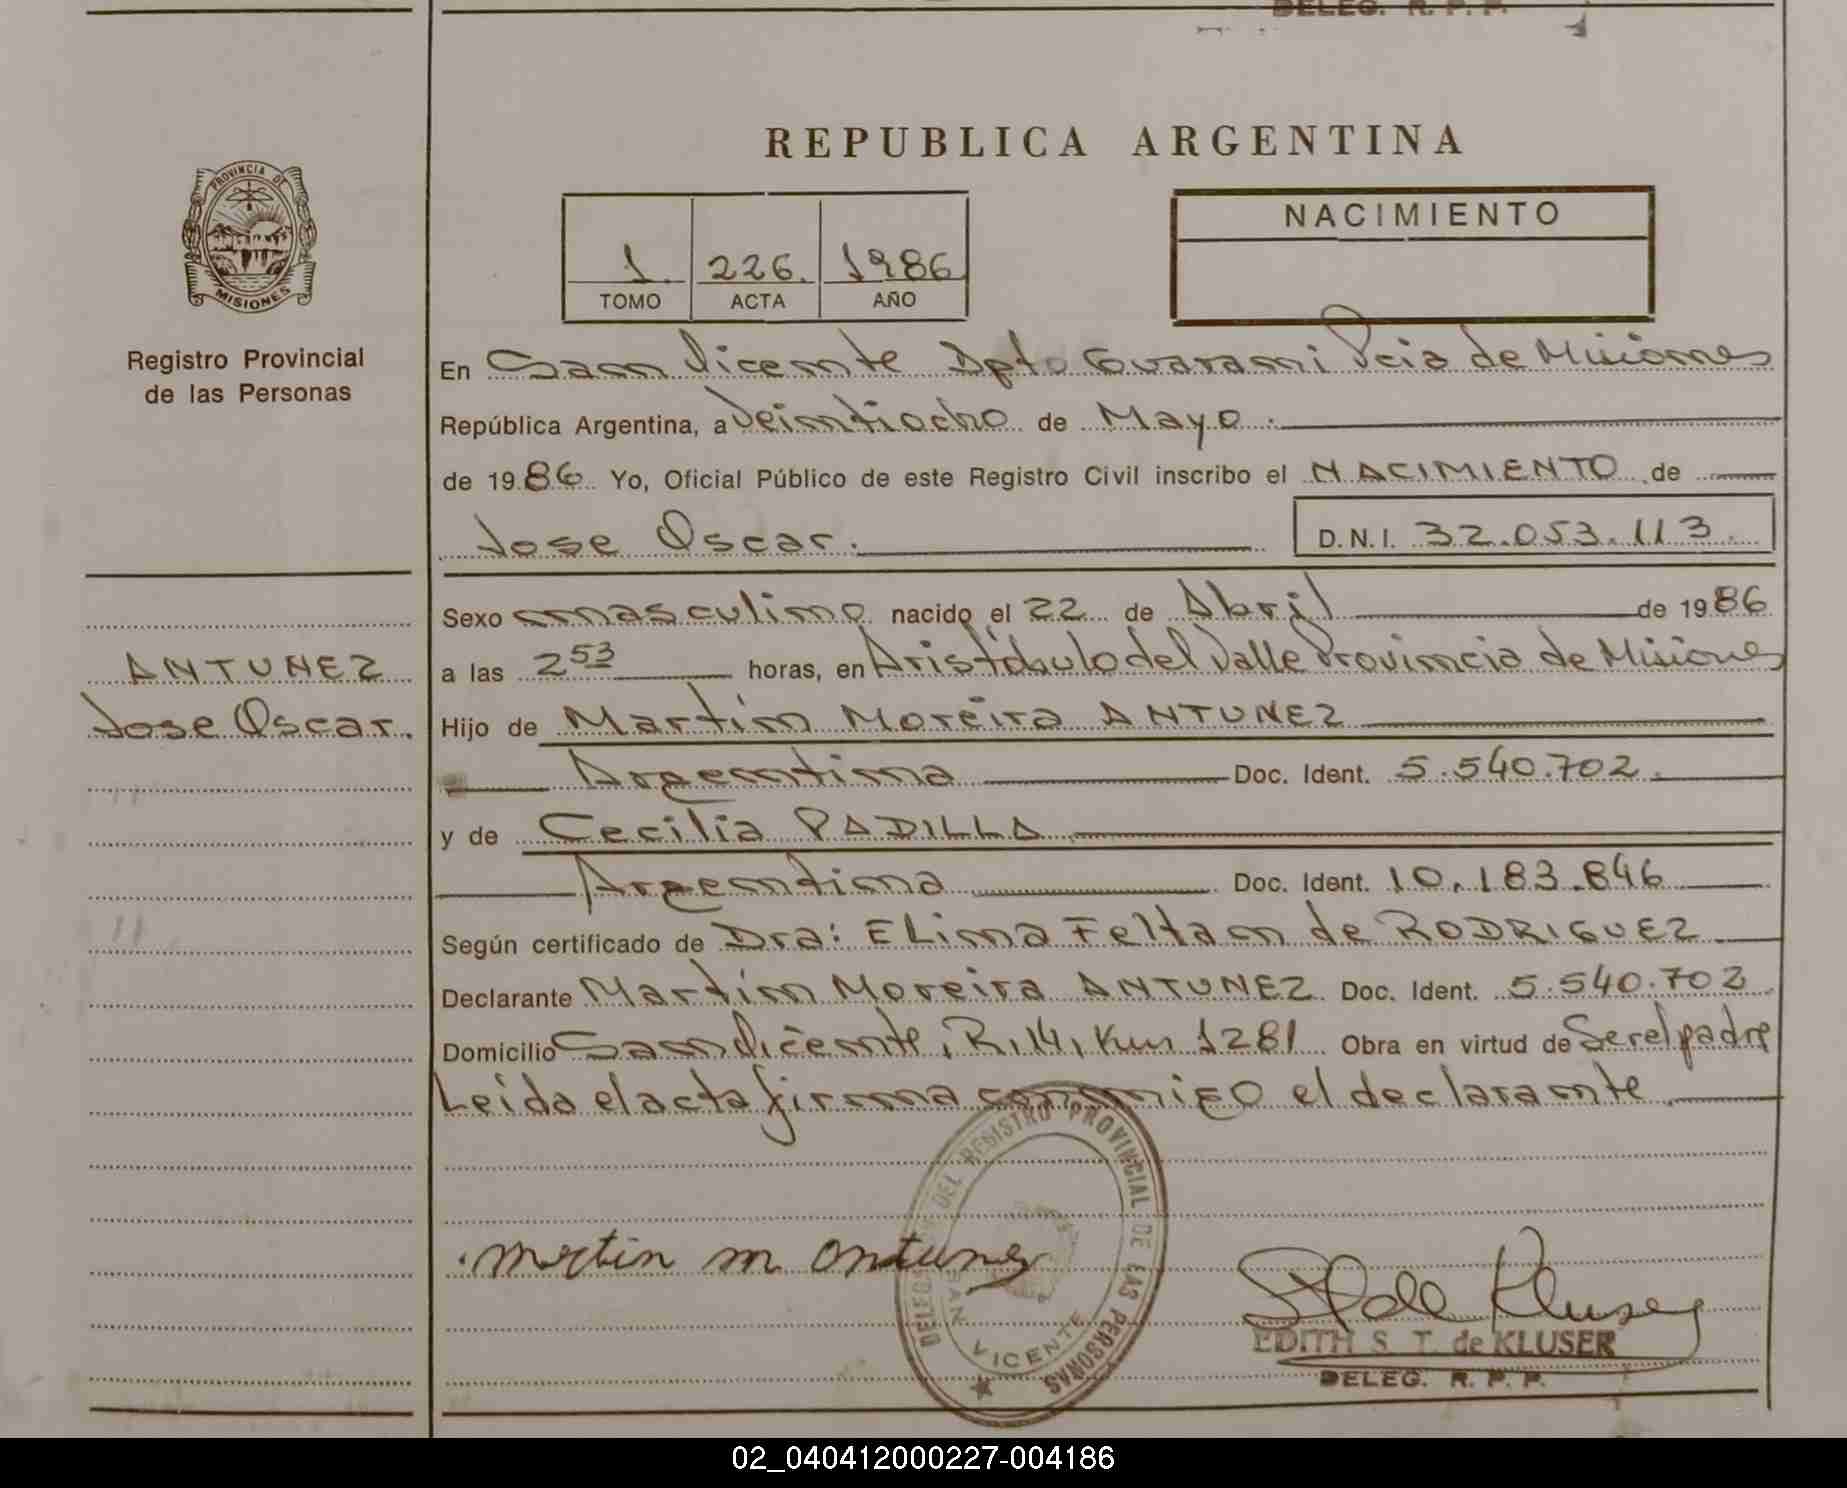 DELEG. R. P. P.
REPUBLICA ARGENTINA
PROVINCIA DE
MISIONES
Registro Provincial
de las Personas
1. 226. 1986
TOMO ACTA AÑO
NACIMIENTO
En San Vicente Dpto Guarani Pcia de Misiones
República Argentina, a Veintiocho de Mayo.
de 1986 Yo, Oficial Público de este Registro Civil inscribo el NACIMIENTO de
Jose Oscar. D.N.I. 32.053.113.
Sexo masculino nacido el 22 de Abril de 1986
ANTUNEZ
Jose Oscar.
a las 2 53 horas, en Aristóbulo del Valle Provincia de Misiones
Hijo de Martín Moreira ANTUNEZ
Argentina Doc. Ident. 5.540.702.
y de Cecilia PADILLA
Argentina Doc. Ident. 10.183.846
Según certificado de Dra: ELina Feltan de RODRIGUEZ
Declarante Martín Moreira ANTUNEZ Doc. Ident. 5.540.702
Domicilio San Vicente, R.14, Km 1281 Obra en virtud de Ser el padre
Leída el acta firma conmigo el declarante.
DELEGACION DEL REGISTRO PROVINCIAL DE LAS PERSONAS
SAN VICENTE
Martin M Antunez
EDITH S T. de KLUSER
DELEG. R. P. P.
02_040412000227-004186